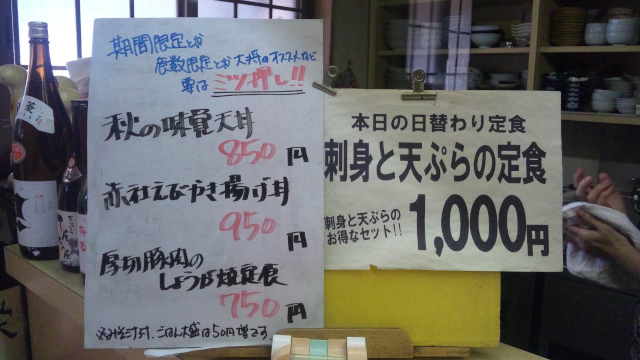 期間限定とか
食数限定とか大将のオススメなど
実は ミツ押し!!
秋の味覚天丼
850円
赤社えびかき揚げ丼
950円
厚切豚肉の
しょうが焼定食
750円
ごはん大盛は50円増です
本日の日替わり定食
刺身と天ぷらの定食
刺身と天ぷらの
お得なセット!! 1,000円